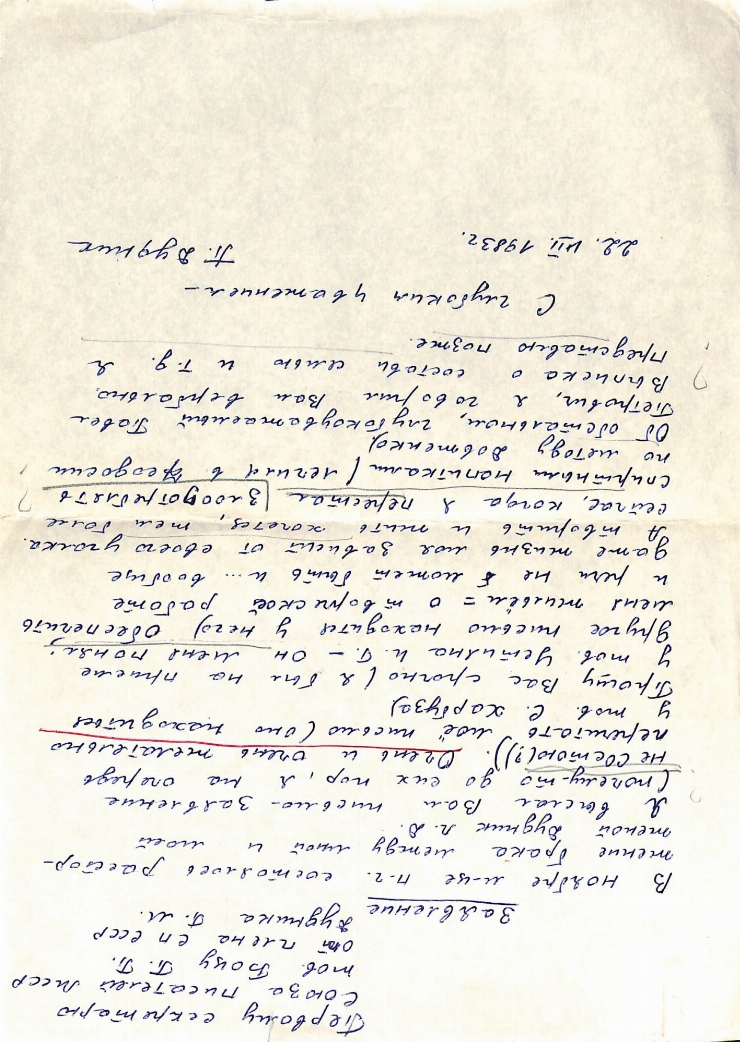 Первому секретарю
Союза писателей МССР
тов. Боцу П. П.
от члена СП СССР
Дудника Г. М.
Заявление
В ноябре м-це п.г. состоялось растор-
жение брака между мной и моей
женой Дудник Л. В.
Я выслал Вам письмо-заявление
(почему-то до сих пор, я на очередь
не состою(?)). Очень и очень желательно
перечитать моё письмо (оно находится
у тов. С. Харбуза)
Прошу Вас срочно (я был на приеме
у тов. Устияна И. Г. – он меня понял;
другое письмо находится у него) обеспечить
меня жильём = о творческой работе
и речи не может быть и... вообще
даже жизнь моя зависит от своего уголка.
А творить и жить хочется, тем более
сейчас, когда я перестал злоупотреблять
спиртными напитками (лечился в Феодосии
по методу Довженко)
Об остальном, глубокоуважаемый Павел
Петрович, я говорил Вам вербально.
Выписка о составе семьи и т.д. я
представлю позже.
С глубоким уважением –
22. VII. 1983г. П. Дудник